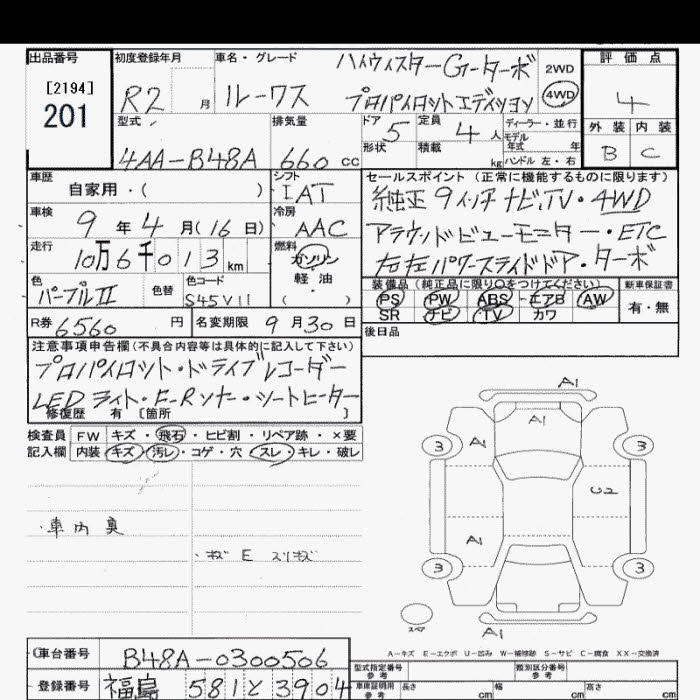 出品番号
[2194]
201
初度登録年月
R2 月
車名・グレード
ルークス
ハイウェイスターGターボ
プロパイロットエディション
2WD
4WD
評価点
4
外装 内装
B C
型式
4AA-B48A
排気量
660 cc
ドア 5
定員 4人
形状
積載 kg
ディーラー・並行
モデル
年式 年
ハンドル 左・右
車歴
自家用・( )
シフト
IAT
車検
9年4月(16日)
冷房
AAC
走行
10万6千013km
燃料
ガソリン
軽油
( )
色
パープルII
色替
色コード
S45VII
セールスポイント(正常に機能するものに限ります)
純正9インチナビ.TV・4WD
アラウンドビューモニター・ETC
右左パワースライドドア・ターボ
装備品(純正品に限り○をつけてください)
PS PW ABS エアB AW
SR ナビ TV カワ
新車保証書
有・無
R券 6560 円
名変期限 9月30日
後日品
注意事項申告欄(不具合内容等は具体的に記入して下さい)
プロパイロット・ドライブレコーダー
LEDライト・F-Rソナー・シートヒーター
修復歴 有 [箇所 ]
検査員 FW キズ・飛石・ヒビ割・リペア跡・×要
記入欄 内装 キズ・汚レ・コゲ・穴・スレ・キレ・破レ
・車内臭
・キズ E スリキズ
A1
A1
3 A1 3
U2
A1
3 3
A1
スペア
A-キズ E-エクボ U-凹み W-補修跡 S-サビ C-腐食 XX-交換済
車台番号 B48A-0300506
登録番号 福島 581と3904
型式指定番号
参考
類別区分番号
参考
車庫証明用
参考
長さ cm 幅 cm 高さ cm